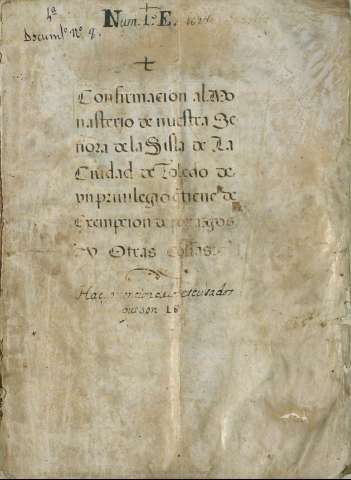 4ª
Documᵗᵒ Nº 8.
Num. 1º E.
+
Confirmacion al Mo
nasterio de nuestra Se
ñora de la Sisla de La
Ciudad de Toledo de
vn priuilegio q̃ tiene de
Exempcion de
Y Otras Cosas.
escusados
que son 16